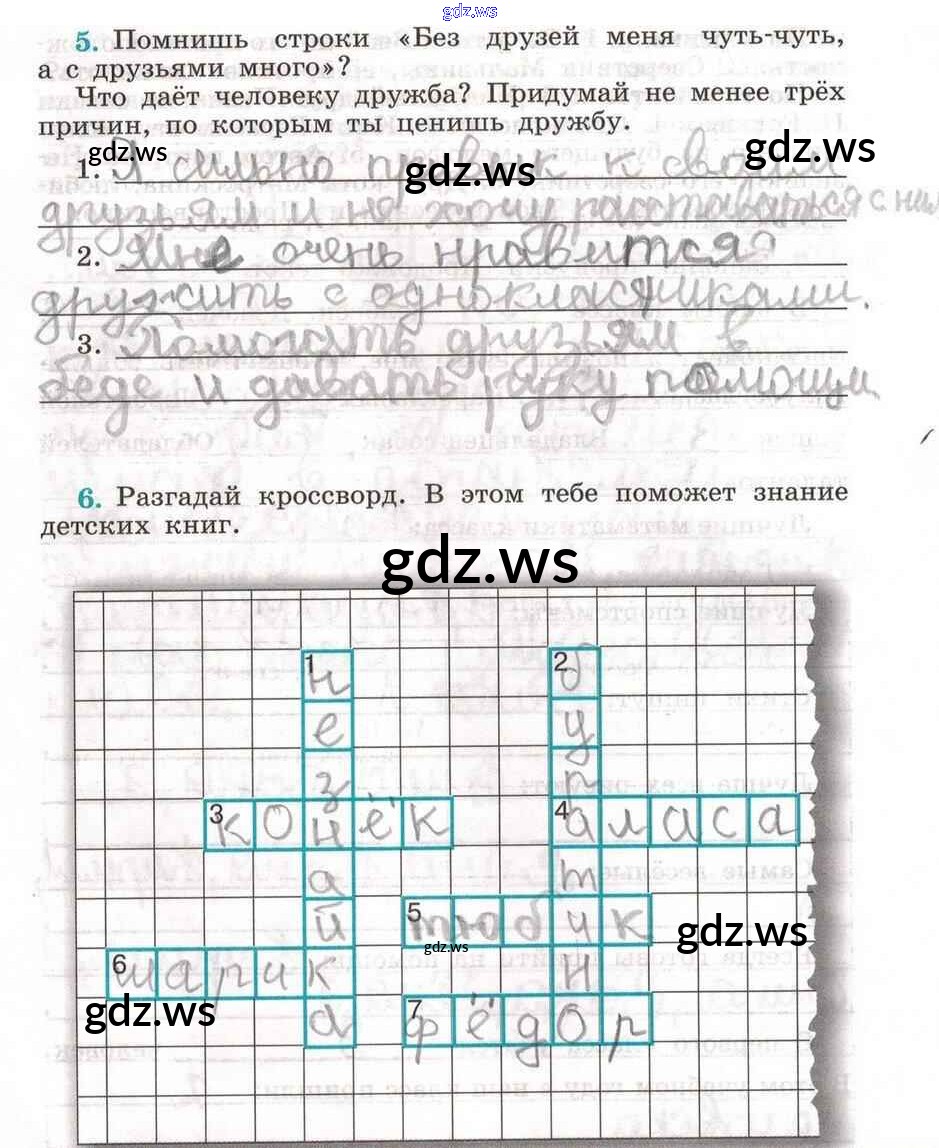 gdz.ws
5. Помнишь строки «Без друзей меня чуть-чуть,
а с друзьями много»?
Что даёт человеку дружба? Придумай не менее трёх
причин, по которым ты ценишь дружбу.
gdz.ws
gdz.ws
gdz.ws
1. Я сильно привык к своим
друзьям и не хочу расставаться с ним
2. Мне очень нравится
дружить с одноклассниками.
3. Помогать друзьям в
беде и давать руку помощи
6. Разгадай кроссворд. В этом тебе поможет знание
детских книг.
gdz.ws
1 незнайка
2 буратино
3 конёк
4 аласа
5 тюбик
gdz.ws
gdz.ws
6 шарик
gdz.ws
7 фёдор